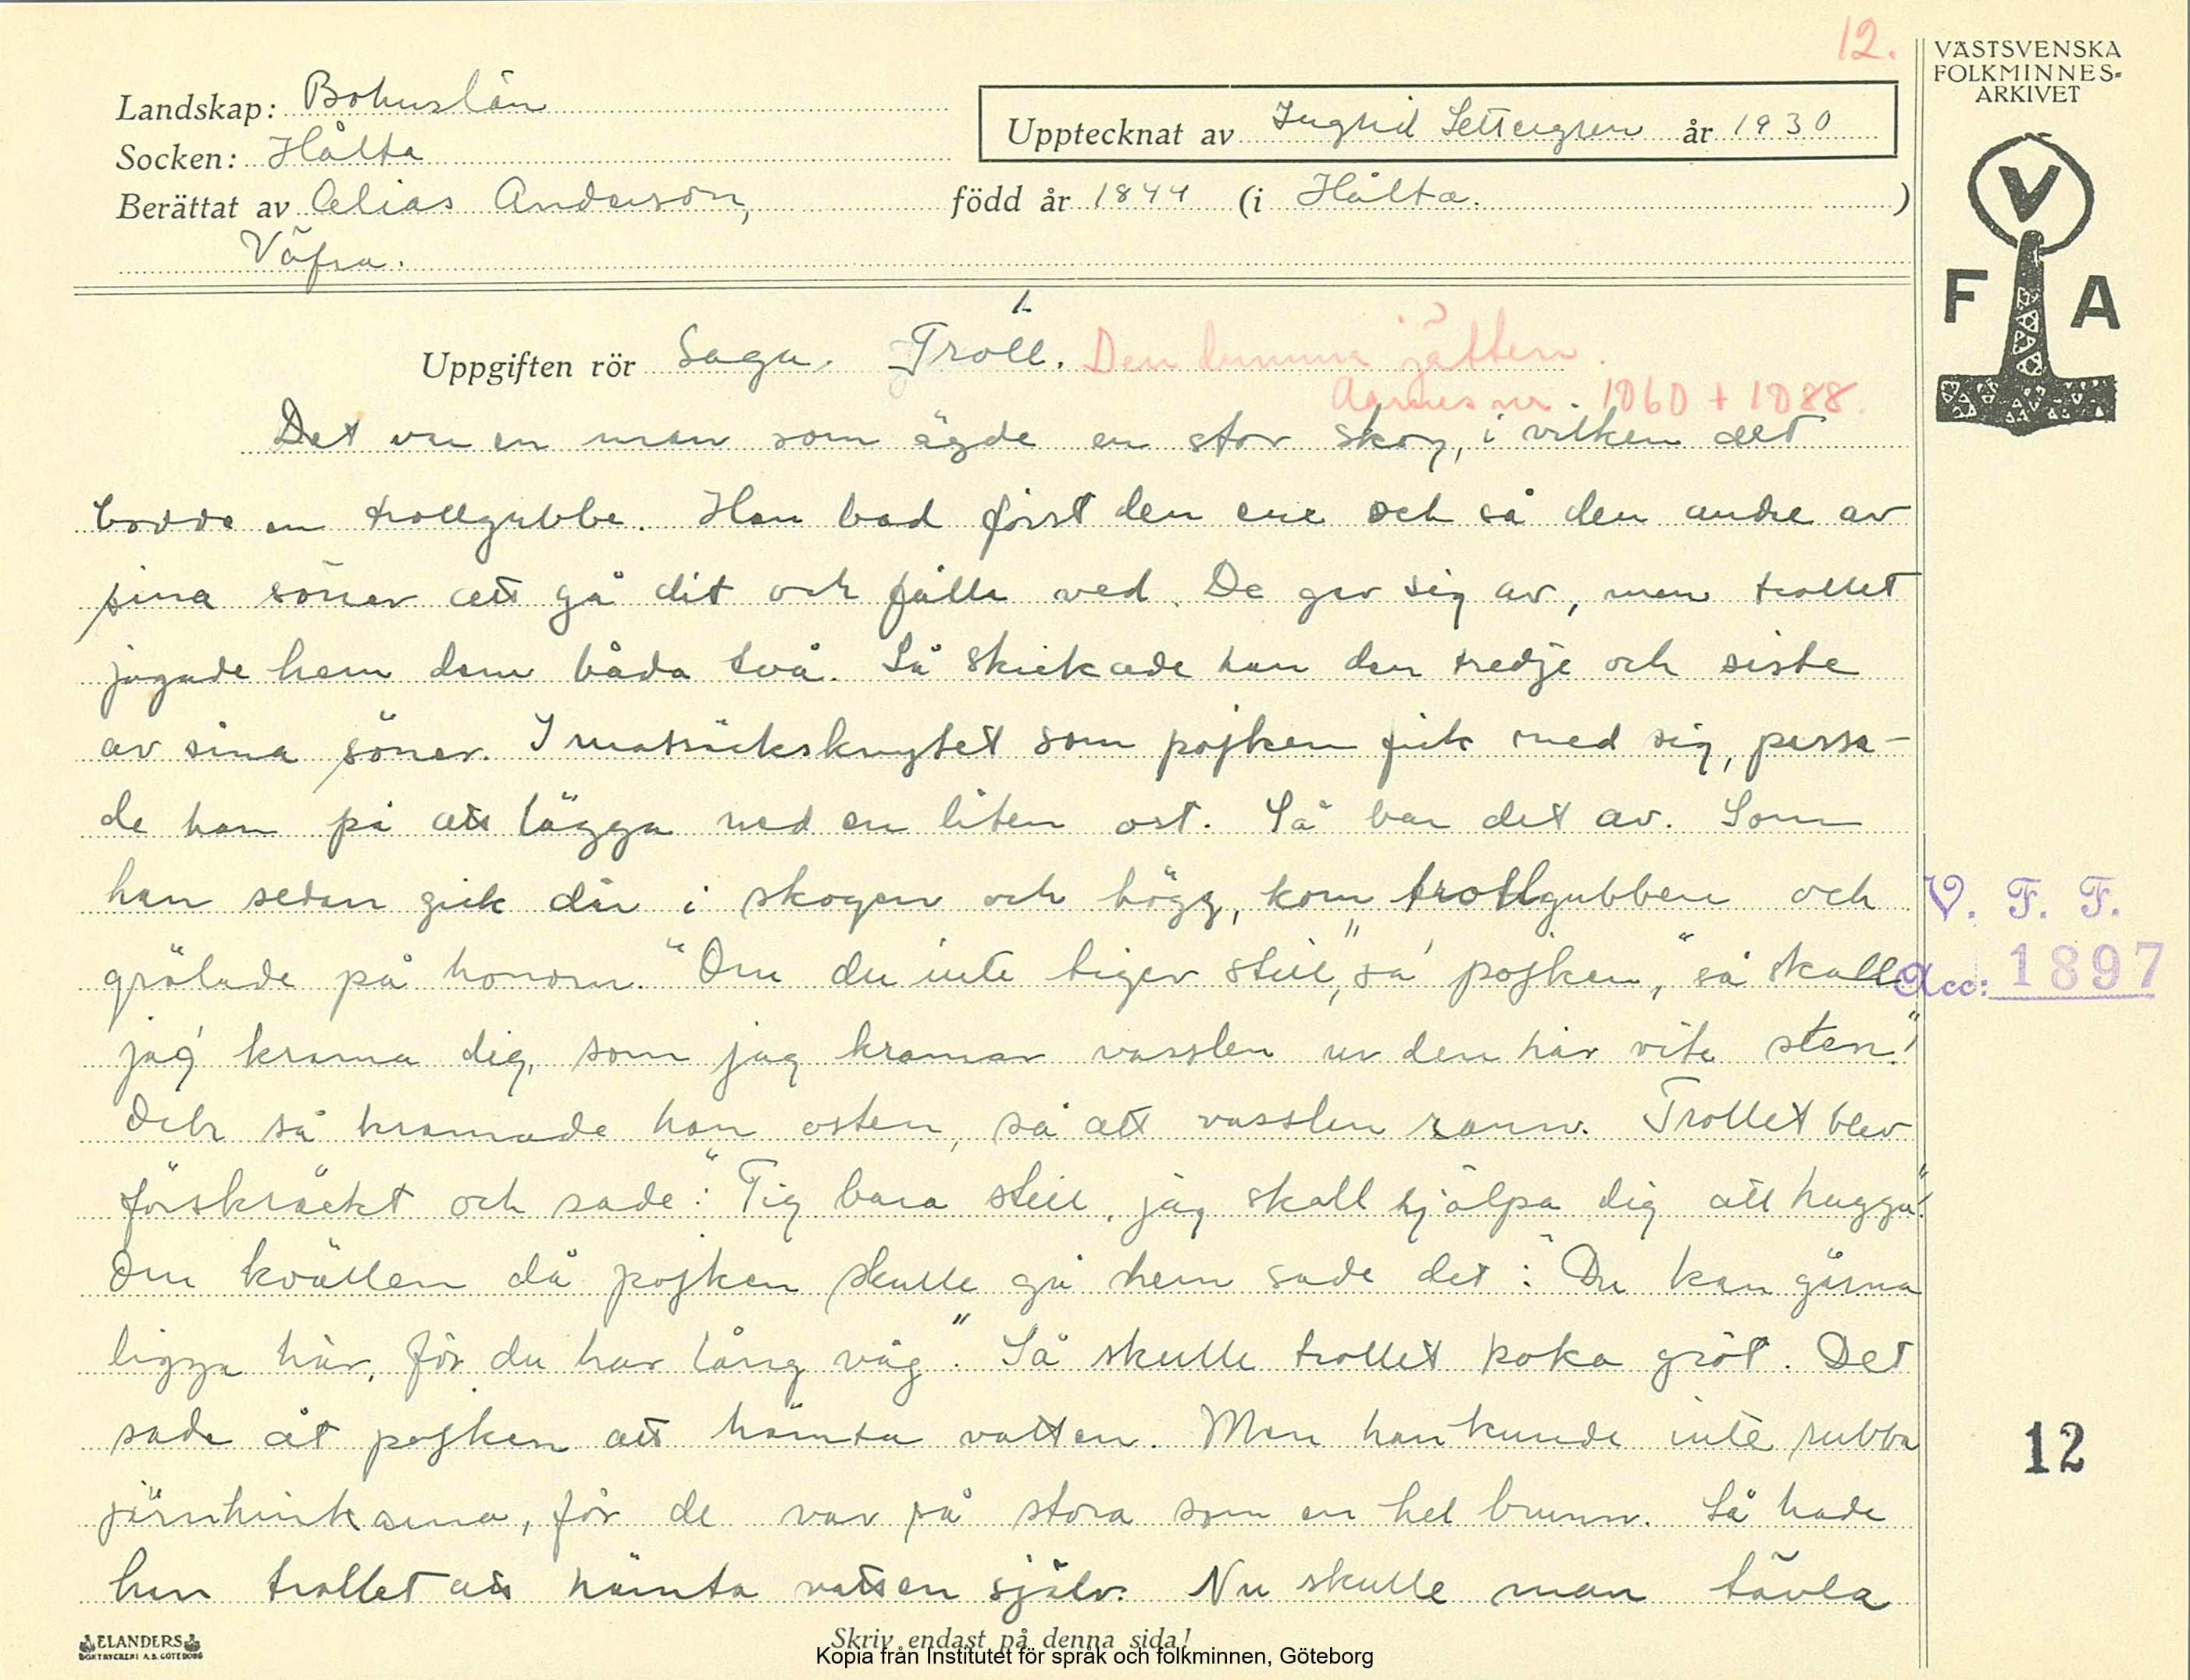 12.
VÄSTSVENSKA
FOLKMINNES-
ARKIVET
Landskap: Bohuslän
Upptecknat av Ingrid Settergren år 1930
Socken: Hålta
Berättat av Elias Anderson, född år 1844 (i Hålta.)
Väfra.
V
F A
Uppgiften rör Saga. Troll. Den dumma jätten.
Aarnes nr. 1060 + 1088.
Det var en man som ägde en stor skog, i vilken det
bodde en trollgubbe. Han bad först den ene och så den andre av
sina söner att gå dit och fälla ved. De gav sig av, men trollet
jagade hem dem båda två. Så skickade han den tredje och siste
av sina söner. I matsäcksknytet som pojken fick med sig, passa-
de han på att lägga ned en liten ost. Så bar det av. Som
han sedan gick där i skogen och högg, kom trollgubben och
grälade på honom. "Om du inte tiger still", sa' pojken, "så skall
jag krama dig, som jag kramar vasslen ur den här vite sten."
Och så kramade han osten, så att vasslen rann. Trollet blev
förskräckt och sade: "Tig bara still, jag skall hjälpa dig att hugga!"
Om kvällen då pojken skulle gå hem sade det: "Du kan gärna
ligga här, för du har lång väg". Så skulle trollet koka gröt. Det
sade åt pojken att hämta vatten. Men han kunde inte rubba
järnhinkarna, för de var så stora som en hel brunn. Så bade
han trollet att hämta vatten själv. Nu skulle man tävla
V. F. F.
Acc: 1897
12
ELANDERS
BOKTRYCKERI A.B. GÖTEBORG
Skriv endast på denna sida!
Kopia från Institutet för språk och folkminnen, Göteborg